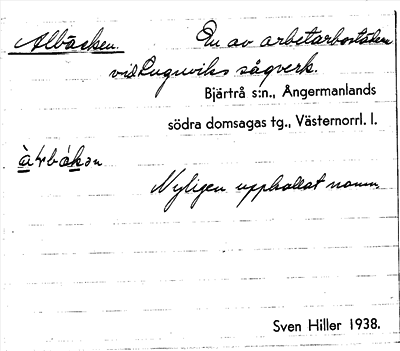 Albäcken. En av arbetarbostäderna
vid Lugnviks sågverk.
Bjärtrå s:n., Ångermanlands
södra domsagas tg., Västernorrl. l.
Nyligen upphallat namn.
Sven Hiller 1938.